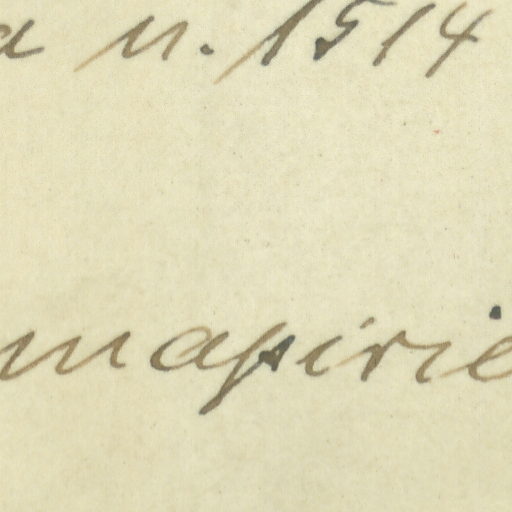 a n. 1514
mapirie